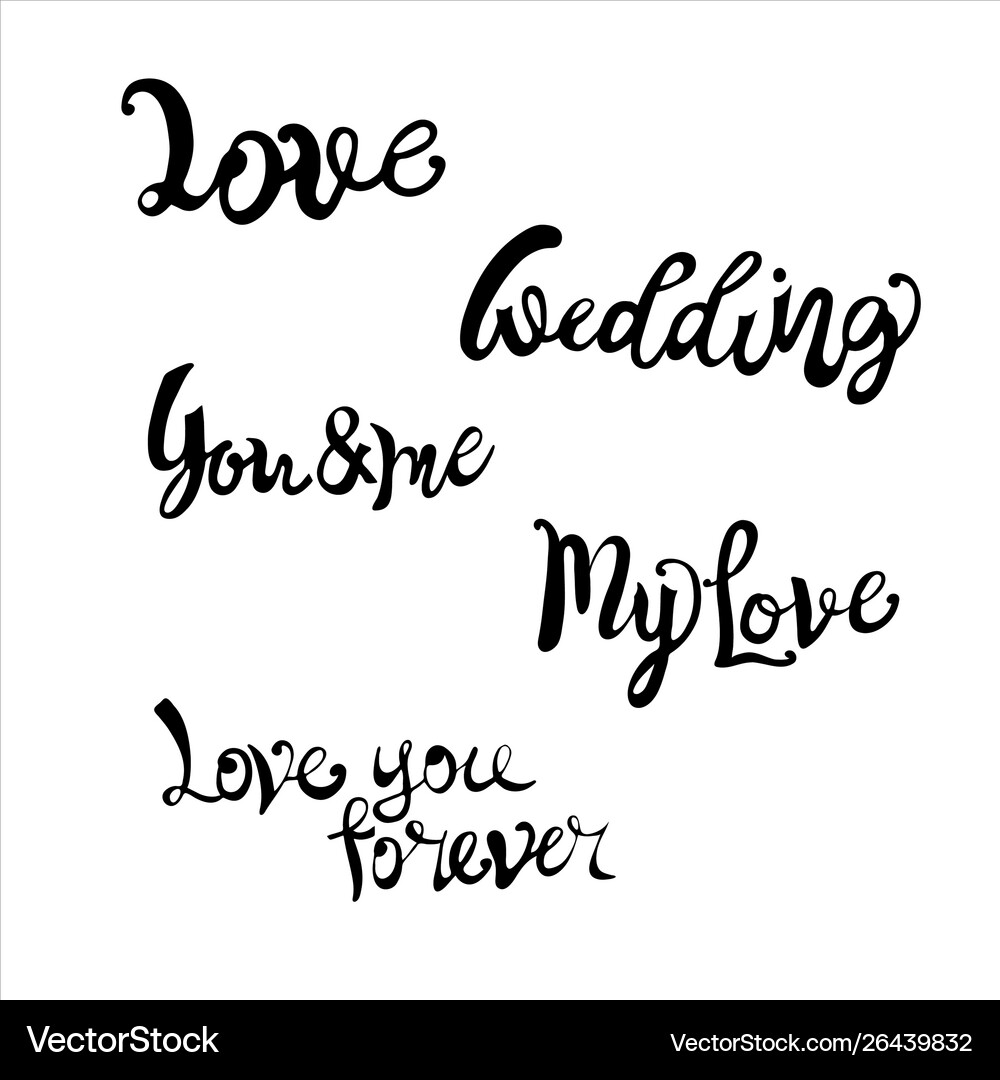 Love
Wedding
You&me
My Love
Love you
forever
VectorStock®
VectorStock.com/26439832